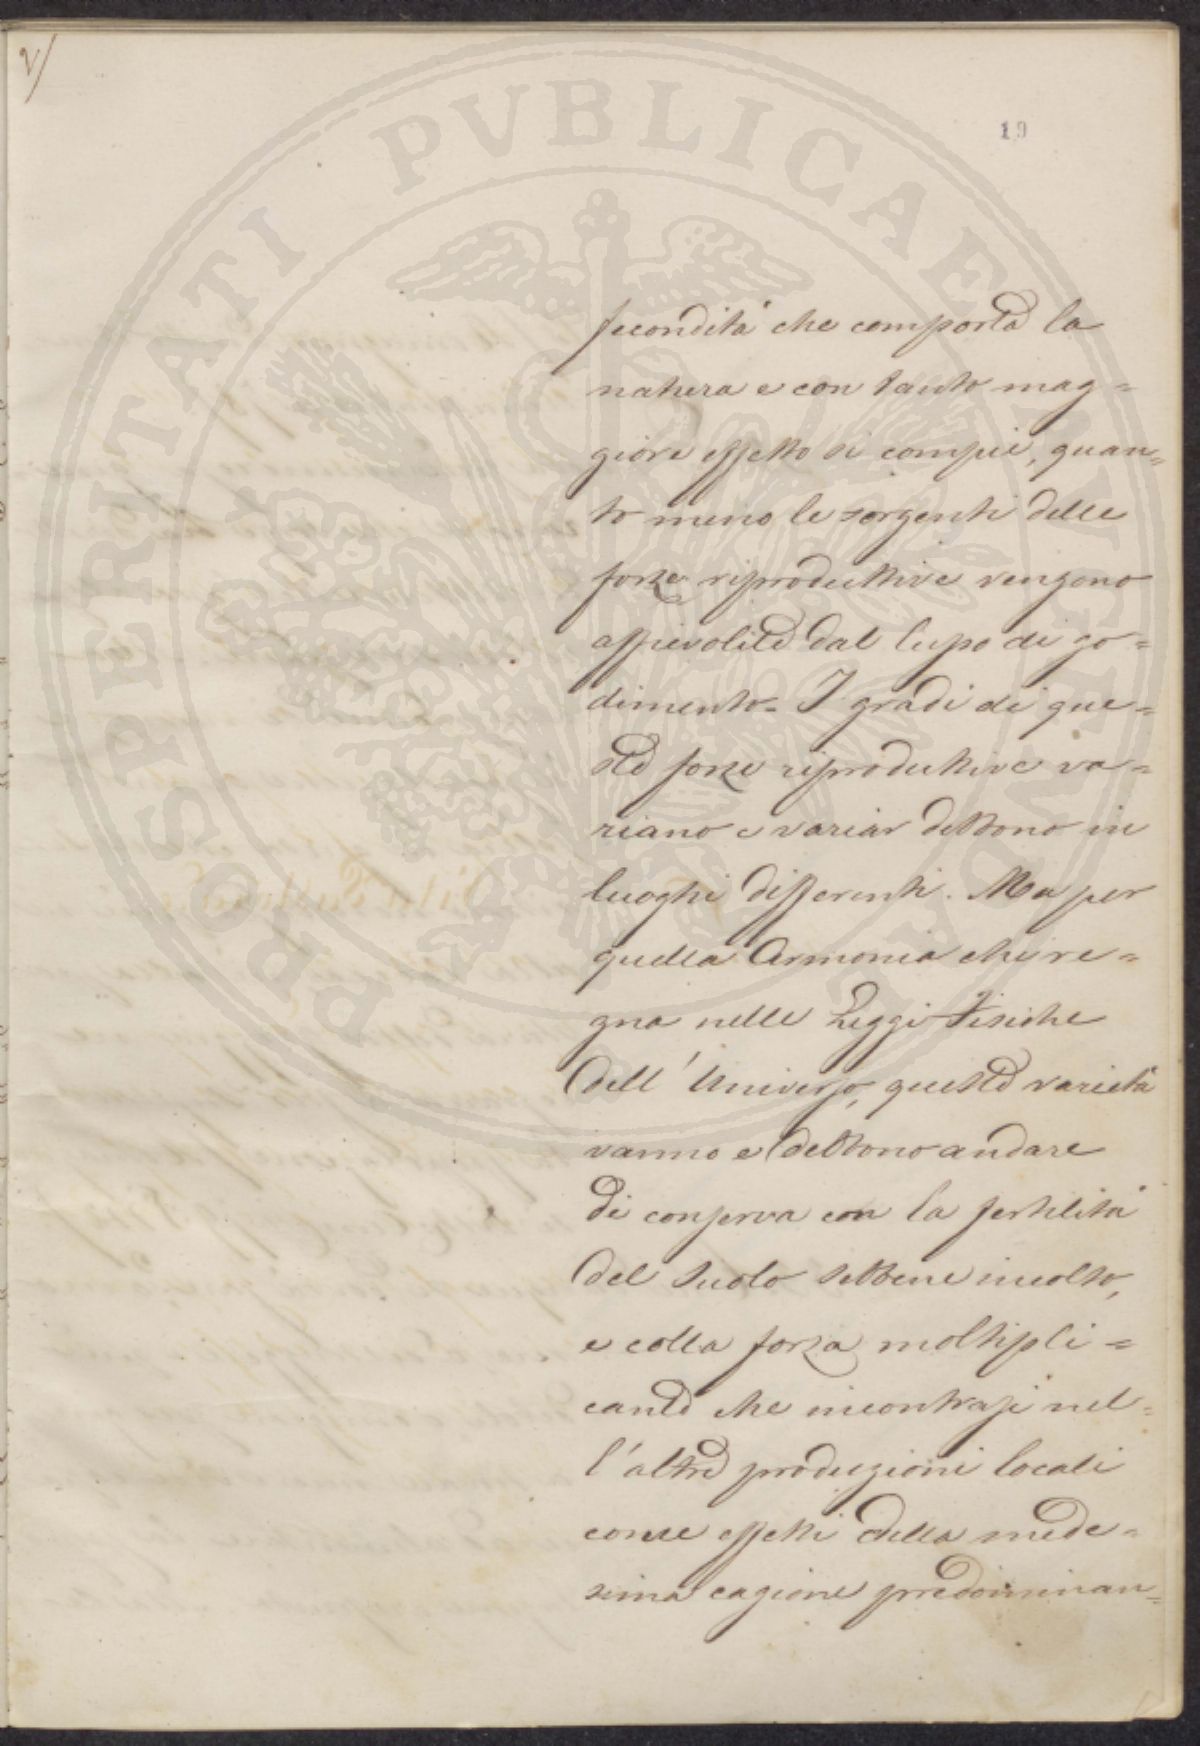 V/
19
PROSPERITATI PVBLICAE
fecondità che comporta la
natura e con tanto mag=
giore effetto si compie, quan=
to meno le sorgenti delle
forze riproduttive vengono
affievolite dal lusso di go=
dimento. I gradi di que=
ste forze riproduttive va=
riano e variar debbono in
luoghi differenti. Ma per
quella Armonia che re=
gna nelle Leggi Fisiche
dell'Universo, queste varietà
vanno e debbono andare
di conserva con la fertilità
del suolo sebbene incolto,
e colla forza moltipli=
cante che incontrasi nel=
l'altre produzioni locali
come effetti della mede=
sima cagione predominan=